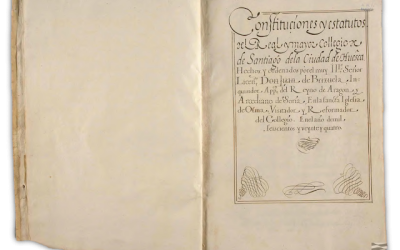 Constituciones y estatutos
del Real y mayor Collegio
de Santiago de la Ciudad de Huesca
Hechos y ordenados por el muy Ille Señor
Licen.do Don Juan de Berzuela, In-
quisidor App.co del Reyno de Aragon y
Arcediano de Soria, En la sancta Iglesia
de Osma, Visitador y Reformador
del Collegio. En el año de mil
seiscientos y veynte y quatro.